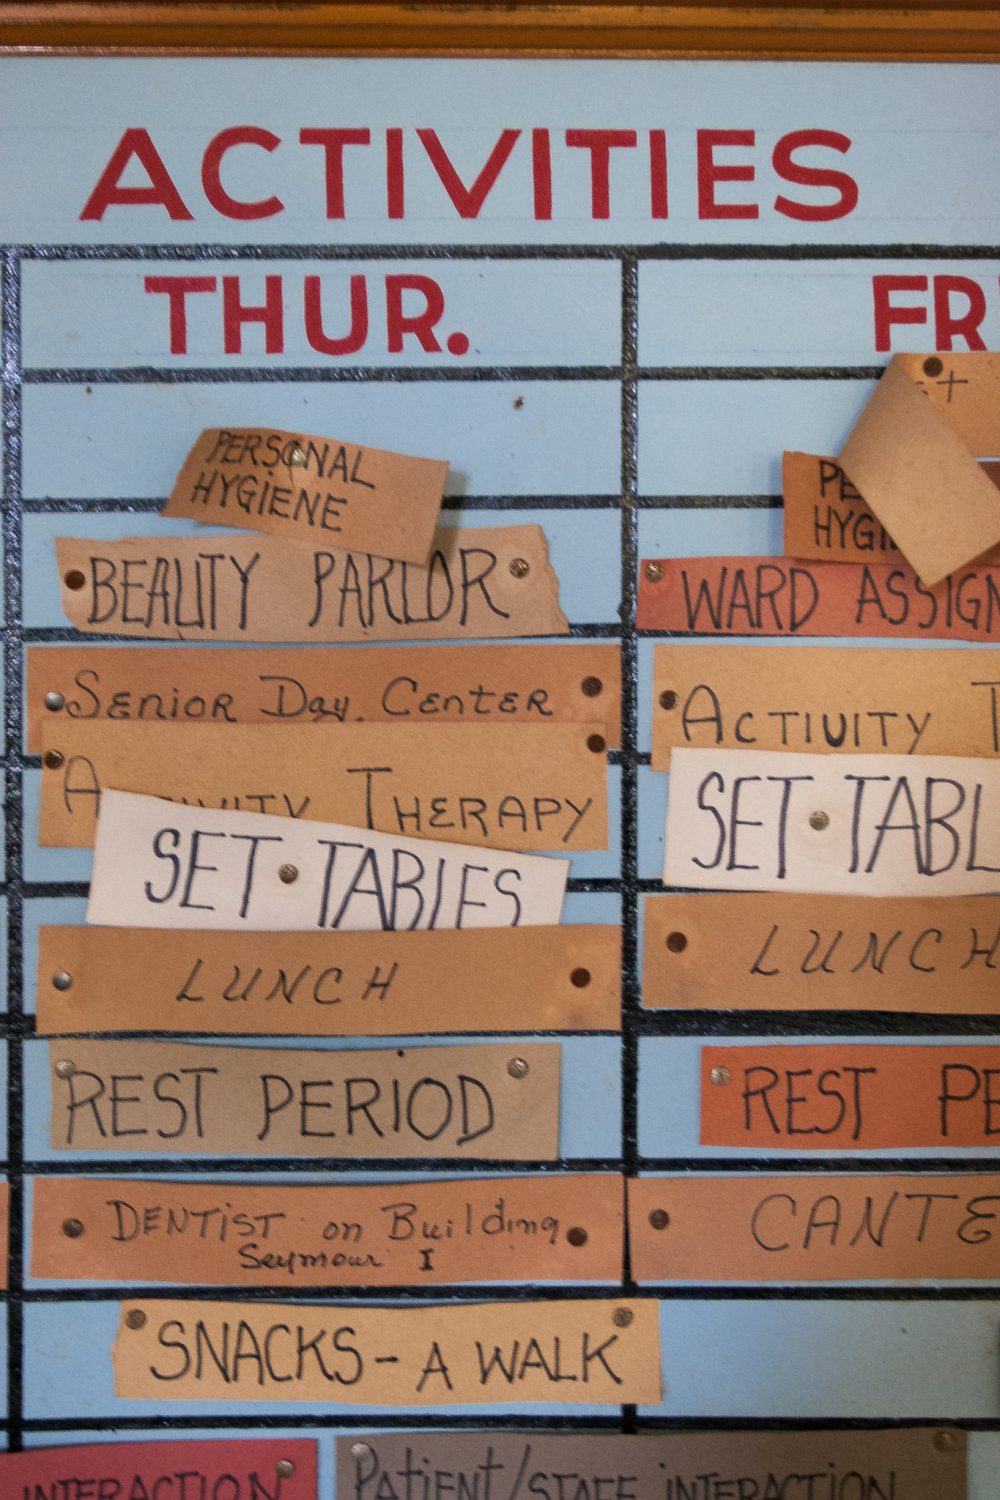 ACTIVITIES
THUR.
PERSONAL
HYGIENE
BEAUTY PARLOR
Senior Day Center
ACTIVITY THERAPY
SET TABLES
LUNCH
REST PERIOD
DENTIST on Building
Seymour I
SNACKS - A WALK
INTERACTION
Patient/STAFF INTERACTION
FRI
PE
HYGI
WARD ASSIGN
ACTIVITY T
SET TABL
LUNCH
REST PE
CANTE